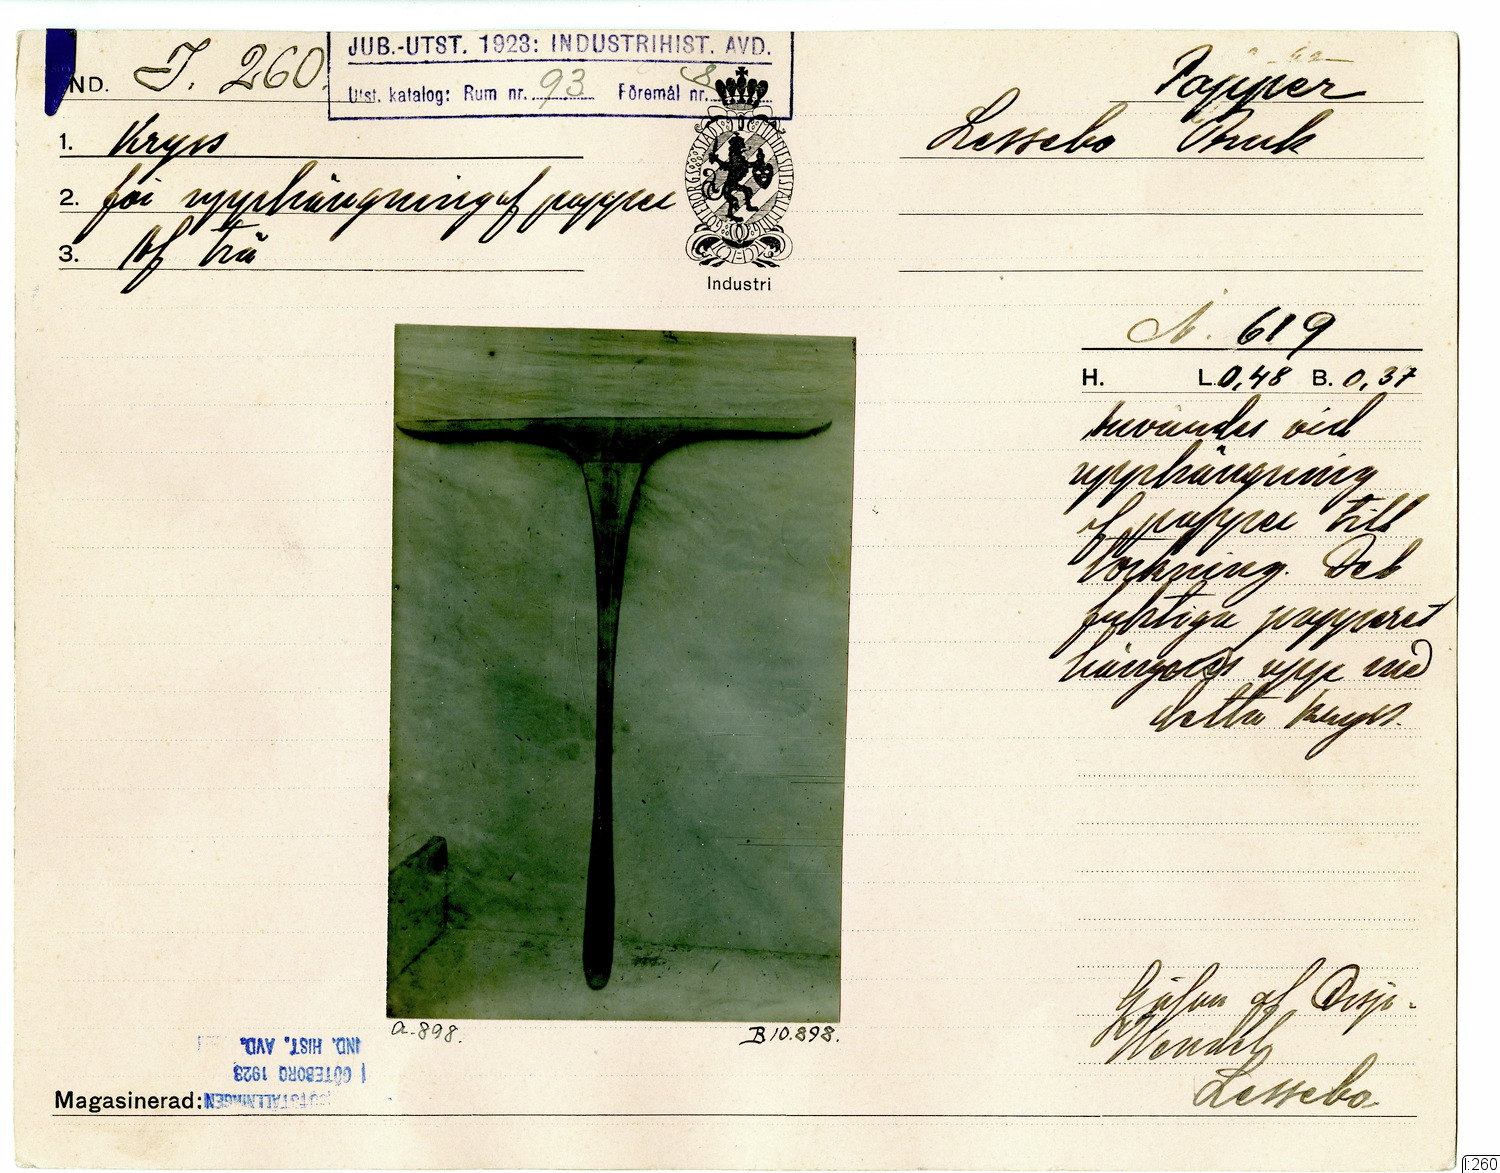 IND. I. 260.
JUB.-UTST. 1923: INDUSTRIHIST. AVD.
Utst. katalog: Rum nr. 93 Föremål nr. 8
Papper
Lessebo Bruk
1. Kryss
2. för upphängning af papper
3. Af trä
GÖTEBORGS STADS
Industri
N. 619
H. L. 0,48 B. 0,37
Användes vid
upphängning
af papper till
torkning. Det
fuktiga papperet
hänges upp med
detta kryss.
a.898.
B10.898.
Gåfva af Disp.
Wendel
Lessebo
IND. HIST. AVD.
GÖTEBORG 1923
UTSTÄLLNINGEN
Magasinerad:
I:260